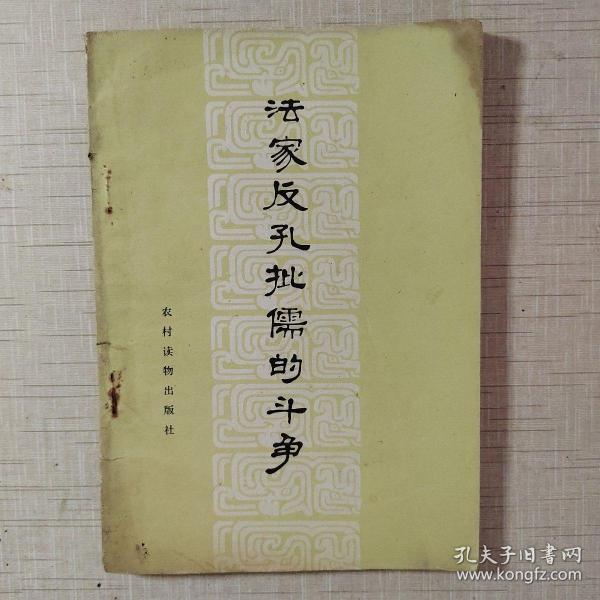 法家反孔批儒的斗争
农村读物出版社
孔夫子旧书网
www.kongfz.com